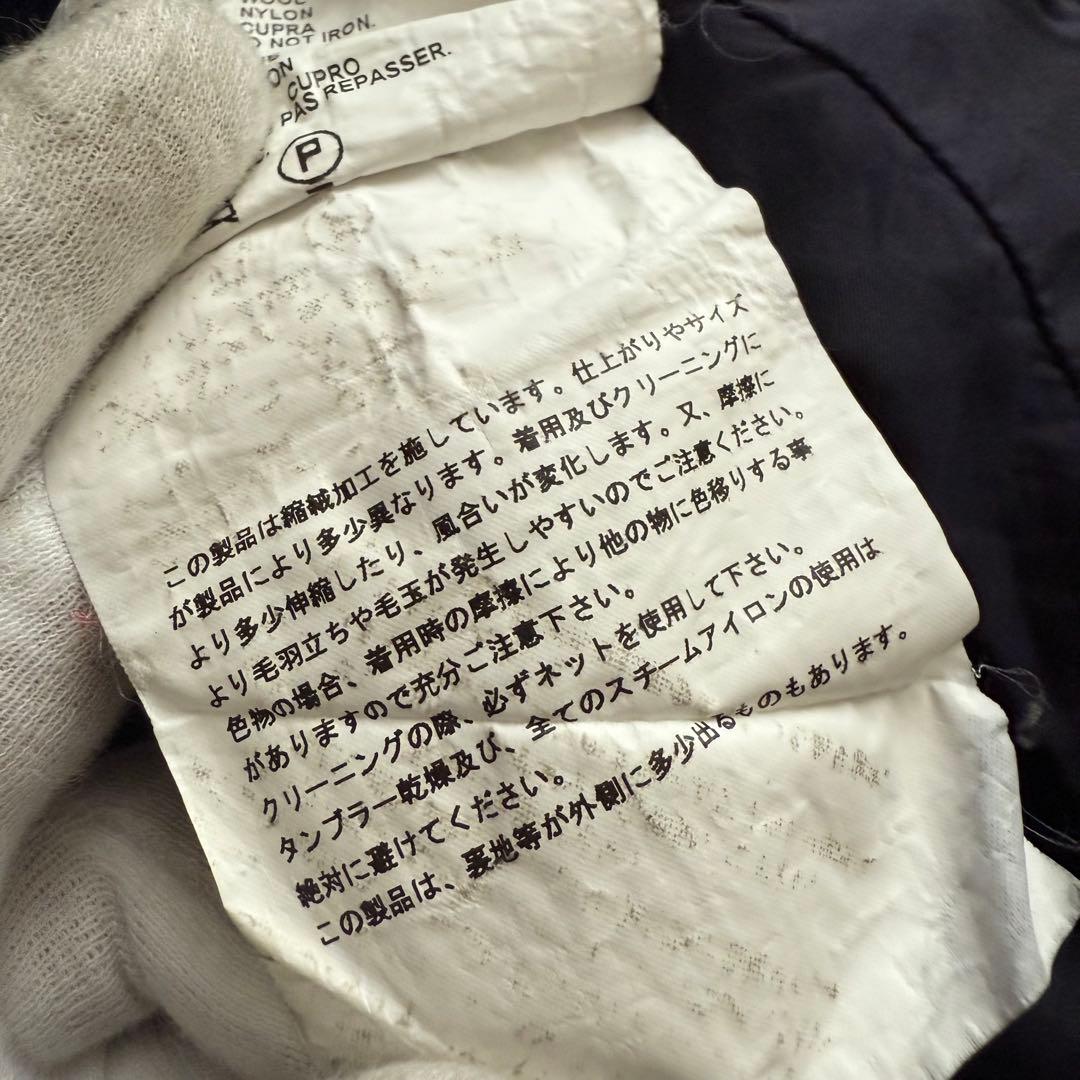 WOOL
NYLON
CUPRA
DO NOT IRON.
ON
CUPRO
PAS REPASSER.
P
この製品は縮絨加工を施しています。仕上がりやサイズ
が製品により多少異なります。着用及びクリーニングに
より多少伸縮したり、風合いが変化します。又、摩擦に
より毛羽立ちや毛玉が発生しやすいのでご注意ください。
色物の場合、着用時の摩擦により他の物に色移りする事
がありますので充分ご注意下さい。
クリーニングの際、必ずネットを使用して下さい。
タンブラー乾燥及び、全てのスチームアイロンの使用は
絶対に避けてください。
この製品は、裏地等が外側に多少出るものもあります。